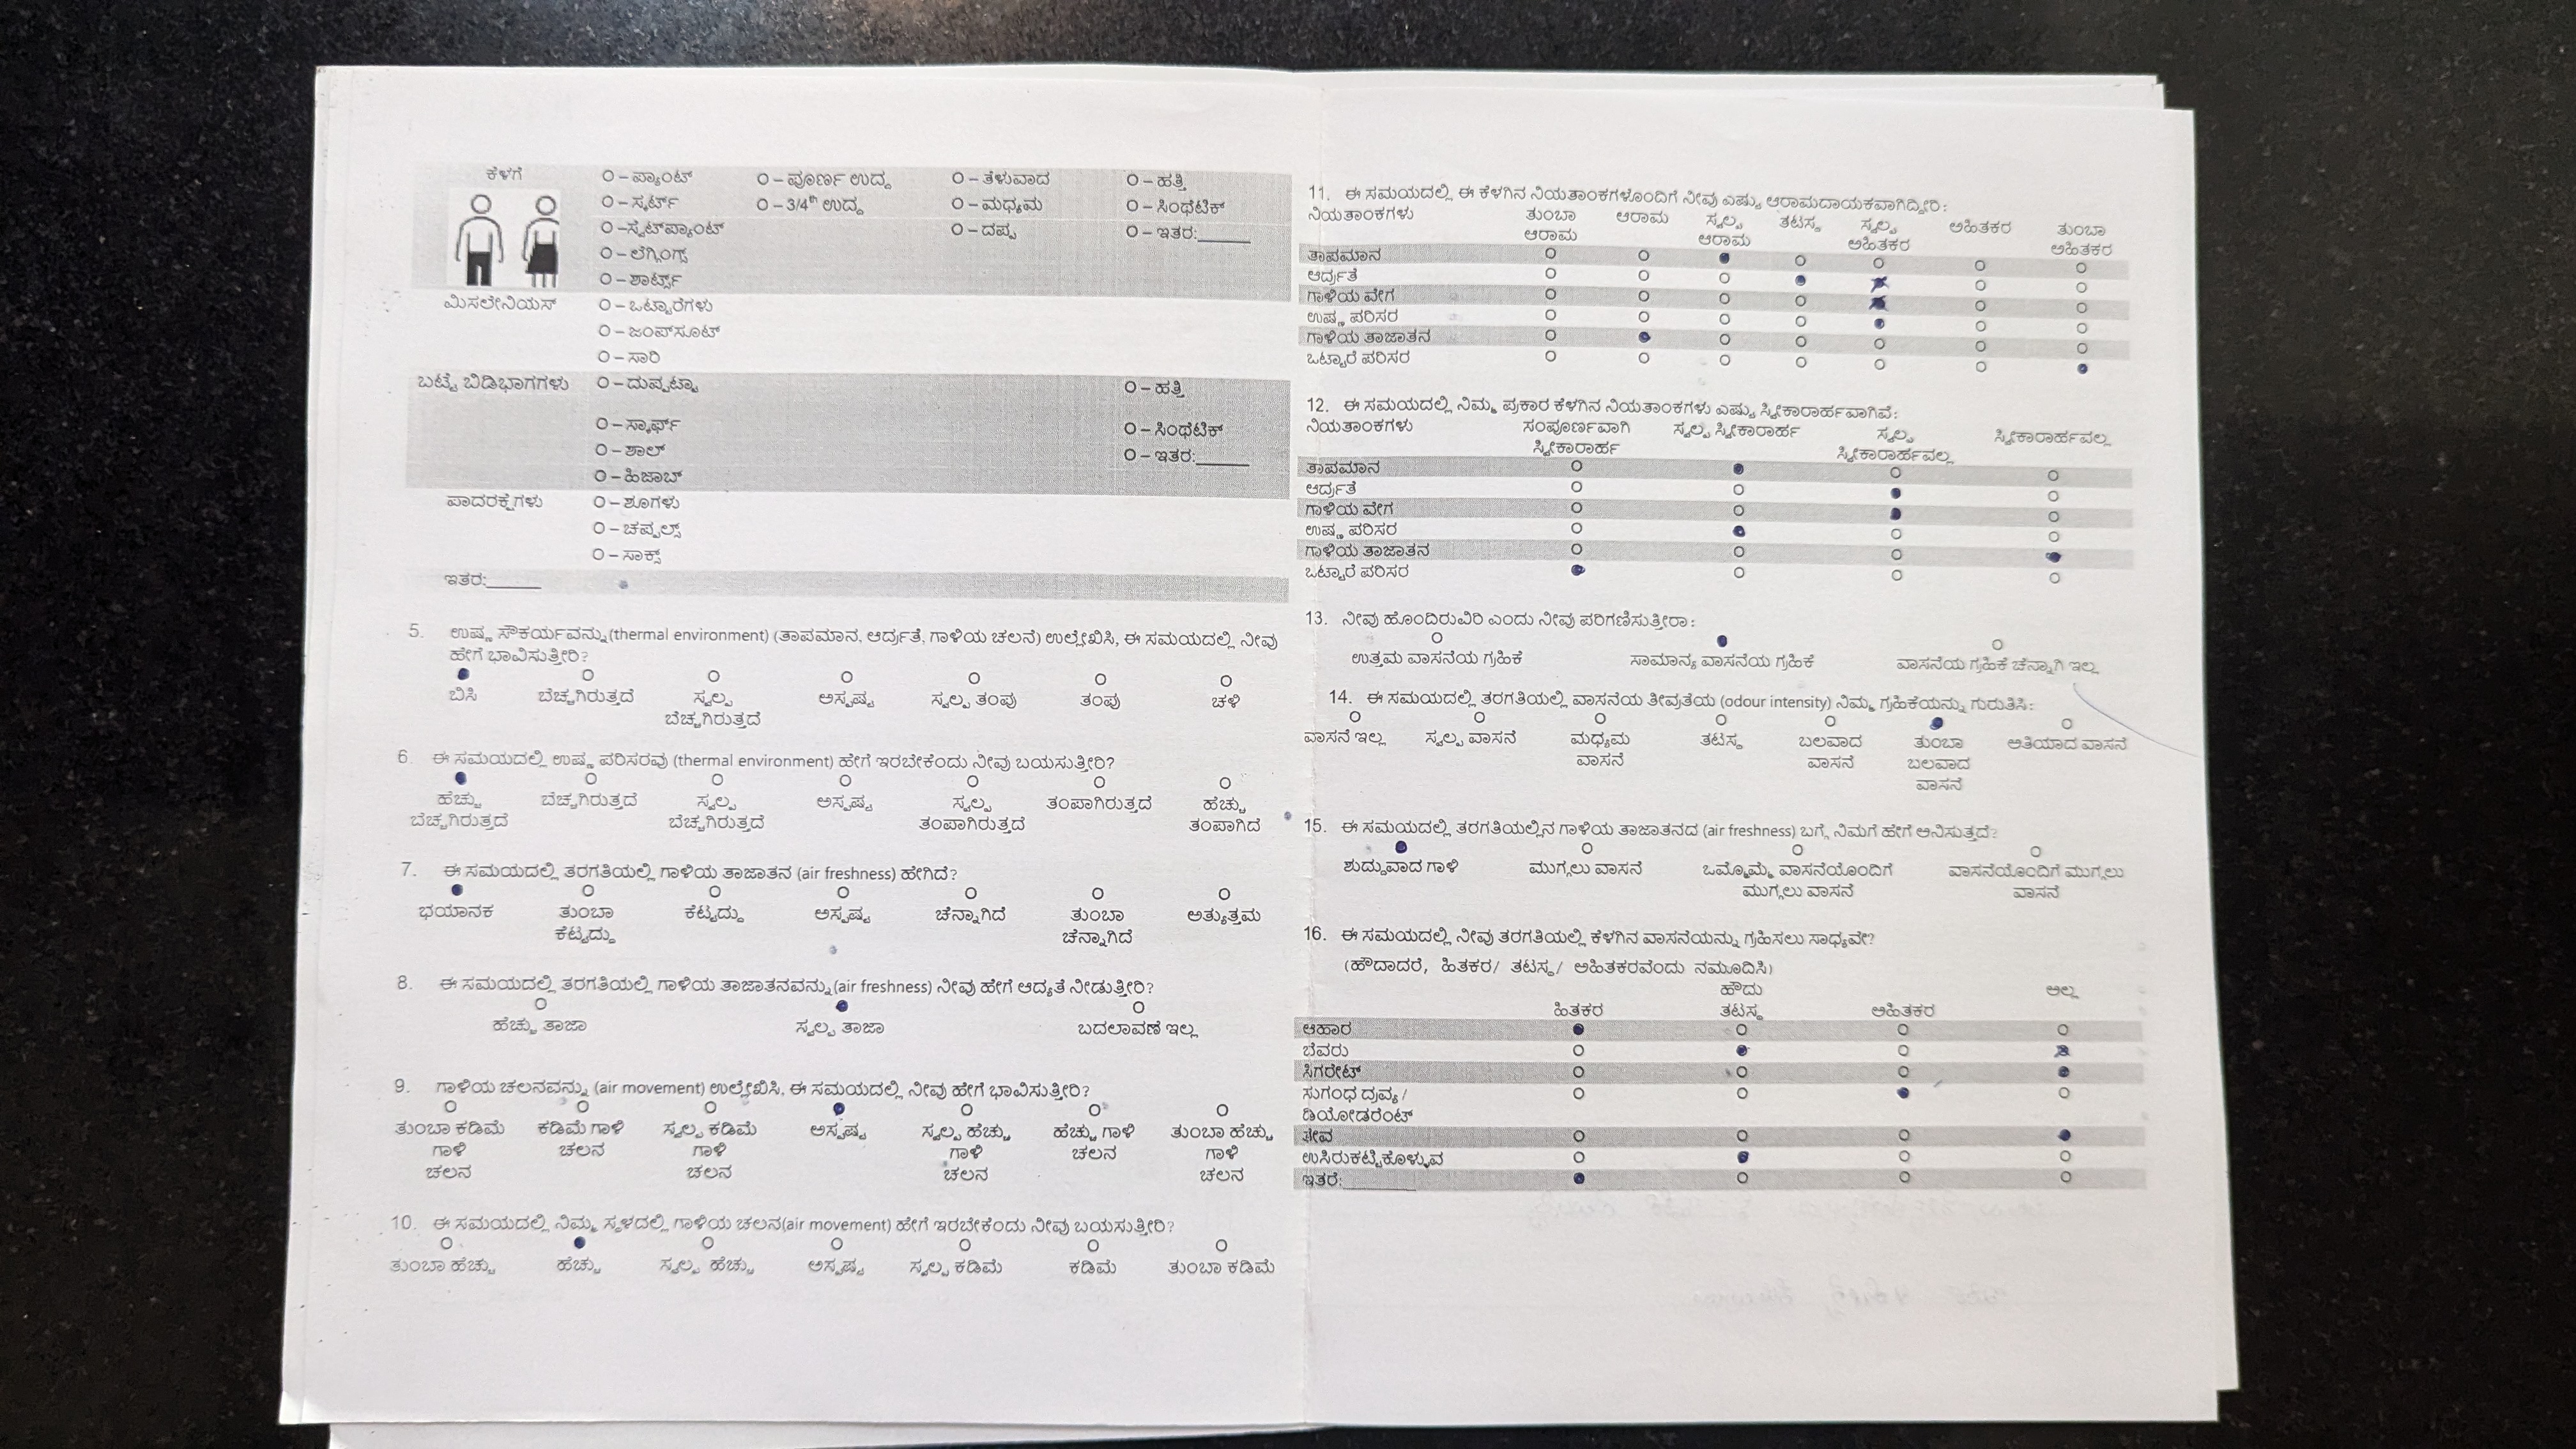 ಕೆಳಗೆ O – ಪ್ಯಾಂಟ್ O – ಪೂರ್ಣ ಉದ್ದ O – ತೆಳುವಾದ O – ಹತ್ತಿ
O – ಸ್ಕರ್ಟ್ O – 3/4th ಉದ್ದ O – ಮಧ್ಯಮ O – ಸಿಂಥೆಟಿಕ್
O –ಸ್ವೆಟ್‌ಪ್ಯಾಂಟ್ O – ದಪ್ಪ O – ಇತರ:______
O – ಲೆಗ್ಗಿಂಗ್ಸ್
O – ಶಾರ್ಟ್ಸ್
ಮಿಸಲೇನಿಯಸ್ O – ಒಟ್ಟಾರೆಗಳು
O – ಜಂಪ್‌ಸೂಟ್
O – ಸಾರಿ
ಬಟ್ಟೆ ಬಿಡಿಭಾಗಗಳು O – ದುಪ್ಪಟ್ಟಾ O – ಹತ್ತಿ
O – ಸ್ಕಾರ್ಫ್ O – ಸಿಂಥೆಟಿಕ್
O – ಶಾಲ್ O – ಇತರ:______
O – ಹಿಜಾಬ್
ಪಾದರಕ್ಷೆಗಳು O – ಶೂಗಳು
O – ಚಪ್ಪಲ್ಸ್
O – ಸಾಕ್ಸ್
ಇತರ:______
5. ಉಷ್ಣ ಸೌಕರ್ಯವನ್ನು (thermal environment) (ತಾಪಮಾನ, ಆರ್ದ್ರತೆ, ಗಾಳಿಯ ಚಲನೆ) ಉಲ್ಲೇಖಿಸಿ, ಈ ಸಮಯದಲ್ಲಿ ನೀವು
ಹೇಗೆ ಭಾವಿಸುತ್ತೀರಿ?
ಬಿಸಿ ಬೆಚ್ಚಗಿರುತ್ತದೆ ಸ್ವಲ್ಪ ಅಸ್ಪಷ್ಟ ಸ್ವಲ್ಪ ತಂಪು ತಂಪು ಚಳಿ
ಬೆಚ್ಚಗಿರುತ್ತದೆ
6. ಈ ಸಮಯದಲ್ಲಿ ಉಷ್ಣ ಪರಿಸರವು (thermal environment) ಹೇಗೆ ಇರಬೇಕೆಂದು ನೀವು ಬಯಸುತ್ತೀರಿ?
ಹೆಚ್ಚು ಬೆಚ್ಚಗಿರುತ್ತದೆ ಸ್ವಲ್ಪ ಅಸ್ಪಷ್ಟ ಸ್ವಲ್ಪ ತಂಪಾಗಿರುತ್ತದೆ ಹೆಚ್ಚು
ಬೆಚ್ಚಗಿರುತ್ತದೆ ಬೆಚ್ಚಗಿರುತ್ತದೆ ತಂಪಾಗಿರುತ್ತದೆ ತಂಪಾಗಿದೆ
7. ಈ ಸಮಯದಲ್ಲಿ ತರಗತಿಯಲ್ಲಿ ಗಾಳಿಯ ತಾಜಾತನ (air freshness) ಹೇಗಿದೆ?
ಭಯಾನಕ ತುಂಬಾ ಕೆಟ್ಟದ್ದು ಅಸ್ಪಷ್ಟ ಚೆನ್ನಾಗಿದೆ ತುಂಬಾ ಅತ್ಯುತ್ತಮ
ಕೆಟ್ಟದ್ದು ಚೆನ್ನಾಗಿದೆ
8. ಈ ಸಮಯದಲ್ಲಿ ತರಗತಿಯಲ್ಲಿ ಗಾಳಿಯ ತಾಜಾತನವನ್ನು (air freshness) ನೀವು ಹೇಗೆ ಆದ್ಯತೆ ನೀಡುತ್ತೀರಿ?
ಹೆಚ್ಚು ತಾಜಾ ಸ್ವಲ್ಪ ತಾಜಾ ಬದಲಾವಣೆ ಇಲ್ಲ
9. ಗಾಳಿಯ ಚಲನವನ್ನು (air movement) ಉಲ್ಲೇಖಿಸಿ, ಈ ಸಮಯದಲ್ಲಿ ನೀವು ಹೇಗೆ ಭಾವಿಸುತ್ತೀರಿ?
ತುಂಬಾ ಕಡಿಮೆ ಕಡಿಮೆ ಗಾಳಿ ಸ್ವಲ್ಪ ಕಡಿಮೆ ಅಸ್ಪಷ್ಟ ಸ್ವಲ್ಪ ಹೆಚ್ಚು ಹೆಚ್ಚು ಗಾಳಿ ತುಂಬಾ ಹೆಚ್ಚು
ಗಾಳಿ ಚಲನ ಗಾಳಿ ಗಾಳಿ ಚಲನ ಗಾಳಿ
ಚಲನ ಚಲನ ಚಲನ ಚಲನ
10. ಈ ಸಮಯದಲ್ಲಿ ನಿಮ್ಮ ಸ್ಥಳದಲ್ಲಿ ಗಾಳಿಯ ಚಲನ(air movement) ಹೇಗೆ ಇರಬೇಕೆಂದು ನೀವು ಬಯಸುತ್ತೀರಿ?
ತುಂಬಾ ಹೆಚ್ಚು ಹೆಚ್ಚು ಸ್ವಲ್ಪ ಹೆಚ್ಚು ಅಸ್ಪಷ್ಟ ಸ್ವಲ್ಪ ಕಡಿಮೆ ಕಡಿಮೆ ತುಂಬಾ ಕಡಿಮೆ
11. ಈ ಸಮಯದಲ್ಲಿ ಈ ಕೆಳಗಿನ ನಿಯತಾಂಕಗಳೊಂದಿಗೆ ನೀವು ಎಷ್ಟು ಆರಾಮದಾಯಕವಾಗಿದ್ದೀರಿ:
ನಿಯತಾಂಕಗಳು ತುಂಬಾ ಆರಾಮ ಸ್ವಲ್ಪ ತಟಸ್ಥ ಸ್ವಲ್ಪ ಅಹಿತಕರ ತುಂಬಾ
ಆರಾಮ ಆರಾಮ ಅಹಿತಕರ ಅಹಿತಕರ
ತಾಪಮಾನ
ಆರ್ದ್ರತೆ
ಗಾಳಿಯ ವೇಗ
ಉಷ್ಣ ಪರಿಸರ
ಗಾಳಿಯ ತಾಜಾತನ
ಒಟ್ಟಾರೆ ಪರಿಸರ
12. ಈ ಸಮಯದಲ್ಲಿ ನಿಮ್ಮ ಪ್ರಕಾರ ಕೆಳಗಿನ ನಿಯತಾಂಕಗಳು ಎಷ್ಟು ಸ್ವೀಕಾರಾರ್ಹವಾಗಿವೆ:
ನಿಯತಾಂಕಗಳು ಸಂಪೂರ್ಣವಾಗಿ ಸ್ವಲ್ಪ ಸ್ವೀಕಾರಾರ್ಹ ಸ್ವಲ್ಪ ಸ್ವೀಕಾರಾರ್ಹವಲ್ಲ
ಸ್ವೀಕಾರಾರ್ಹ ಸ್ವೀಕಾರಾರ್ಹವಲ್ಲ
ತಾಪಮಾನ
ಆರ್ದ್ರತೆ
ಗಾಳಿಯ ವೇಗ
ಉಷ್ಣ ಪರಿಸರ
ಗಾಳಿಯ ತಾಜಾತನ
ಒಟ್ಟಾರೆ ಪರಿಸರ
13. ನೀವು ಹೊಂದಿರುವಿರಿ ಎಂದು ನೀವು ಪರಿಗಣಿಸುತ್ತೀರಾ:
ಉತ್ತಮ ವಾಸನೆಯ ಗ್ರಹಿಕೆ ಸಾಮಾನ್ಯ ವಾಸನೆಯ ಗ್ರಹಿಕೆ ವಾಸನೆಯ ಗ್ರಹಿಕೆ ಚೆನ್ನಾಗಿ ಇಲ್ಲ
14. ಈ ಸಮಯದಲ್ಲಿ ತರಗತಿಯಲ್ಲಿ ವಾಸನೆಯ ತೀವ್ರತೆಯ (odour intensity) ನಿಮ್ಮ ಗ್ರಹಿಕೆಯನ್ನು ಗುರುತಿಸಿ:
ವಾಸನೆ ಇಲ್ಲ ಸ್ವಲ್ಪ ವಾಸನೆ ಮಧ್ಯಮ ತಟಸ್ಥ ಬಲವಾದ ತುಂಬಾ ಅತಿಯಾದ ವಾಸನೆ
ವಾಸನೆ ವಾಸನೆ ಬಲವಾದ
ವಾಸನೆ
15. ಈ ಸಮಯದಲ್ಲಿ ತರಗತಿಯಲ್ಲಿನ ಗಾಳಿಯ ತಾಜಾತನದ (air freshness) ಬಗ್ಗೆ ನಿಮಗೆ ಹೇಗೆ ಅನಿಸುತ್ತದೆ?
ಶುದ್ಧವಾದ ಗಾಳಿ ಮುಗ್ಗಲು ವಾಸನೆ ಒಮ್ಮೊಮ್ಮೆ ವಾಸನೆಯೊಂದಿಗೆ ವಾಸನೆಯೊಂದಿಗೆ ಮುಗ್ಗಲು
ಮುಗ್ಗಲು ವಾಸನೆ ವಾಸನೆ
16. ಈ ಸಮಯದಲ್ಲಿ ನೀವು ತರಗತಿಯಲ್ಲಿ ಕೆಳಗಿನ ವಾಸನೆಯನ್ನು ಗ್ರಹಿಸಲು ಸಾಧ್ಯವೇ?
(ಹೌದಾದರೆ, ಹಿತಕರ/ ತಟಸ್ಥ/ ಅಹಿತಕರವೆಂದು ನಮೂದಿಸಿ)
ಹೌದು ಅಲ್ಲ
ಹಿತಕರ ತಟಸ್ಥ ಅಹಿತಕರ
ಆಹಾರ
ಬೆವರು
ಸಿಗರೇಟ್
ಸುಗಂಧ ದ್ರವ್ಯ /
ಡಿಯೋಡರೆಂಟ್
ತೇವ
ಉಸಿರುಕಟ್ಟಿಕೊಳ್ಳುವ
ಇತರೆ:________